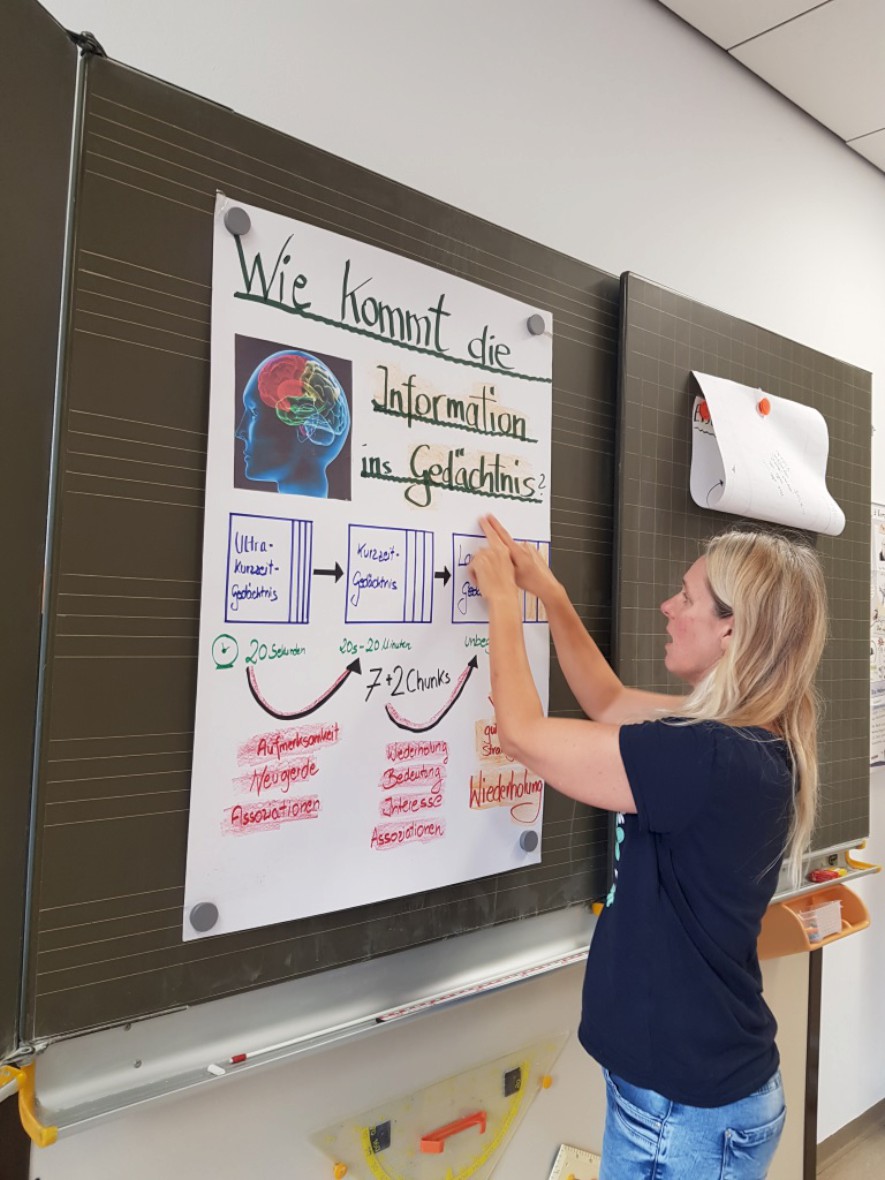 Wie kommt die
Information
ins Gedächtnis?
Ultra-
Kurzzeit-
Gedächtnis
Kurzzeit-
Gedächtnis
20 Sekunden
20s-20 Minuten
7+2 Chunks
Aufmerksamkeit
Neugierde
Assoziationen
Wiederholung
Bedeutung
Interesse
Assoziationen
Wiederholung